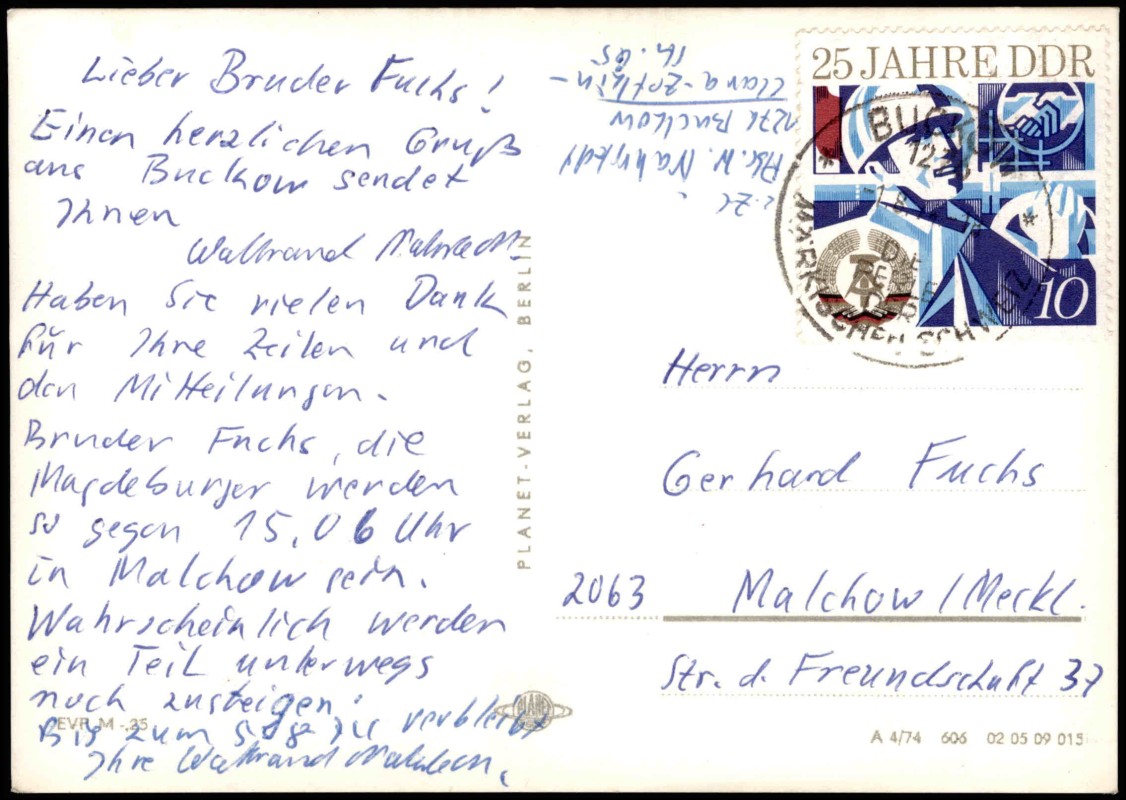 Lieber Bruder Fuchs!
Einen herzlichen Gruß
aus Buckow sendet
Ihnen
Waltraud
Haben Sie vielen Dank
für Ihre Zeilen und
den Mitteilungen.
Bruder Fuchs, die
Magdeburger werden
so gegen 15,06 Uhr
in Malchow sein.
Wahrscheinlich werden
ein Teil unterwegs
noch zusteigen.
Bis zum verbleibt
Ihre Waltraud
z.Zt.
1276 Buckow
Clara-Zetkin-
PLANET-VERLAG, BERLIN
25 JAHRE DDR
10
BUCKOW
MÄRKISCHEN SCHWEIZ
Herrn
Gerhard Fuchs
2063 Malchow/Meckl.
Str. d. Freundschaft 37
PLANET
EVP M -,25
A 4/74 606 02 05 09 015